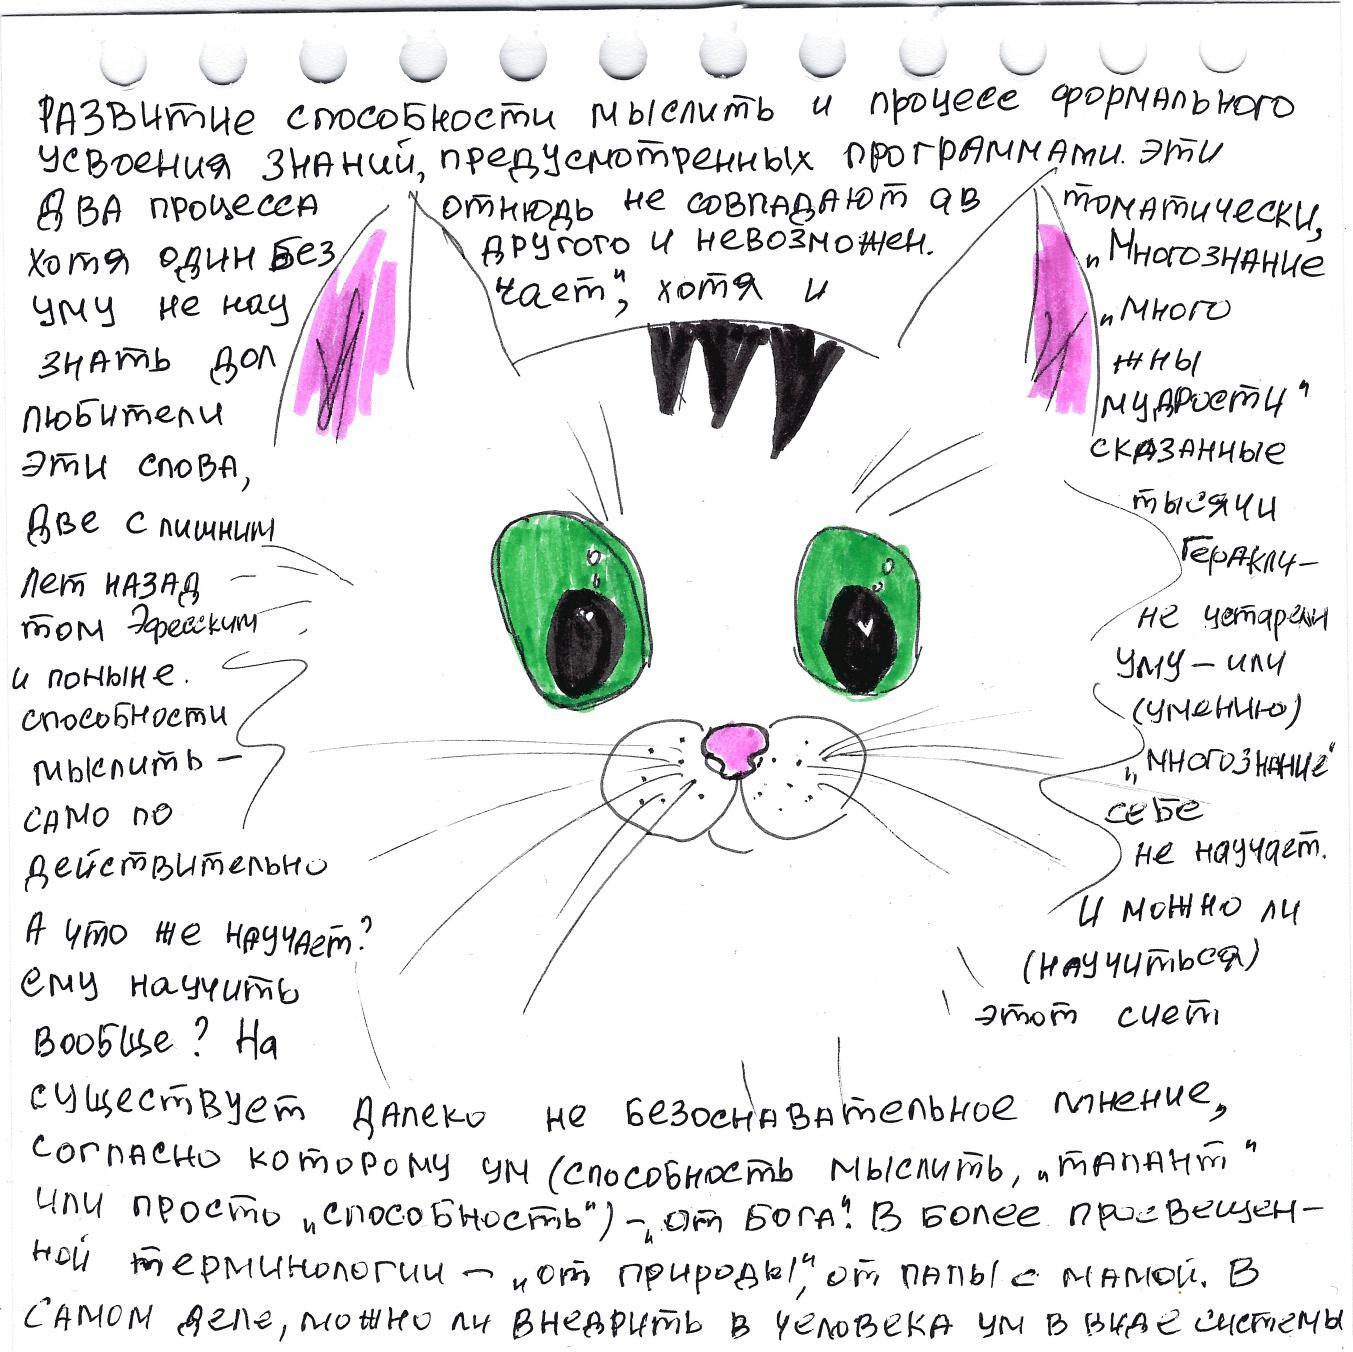 РАЗВИТИЕ СПОСОБНОСТИ МЫСЛИТЬ И ПРОЦЕСЕ ФОРМАЛЬНОГО
УСВОЕНИЯ ЗНАНИЙ, ПРЕДУСМОТРЕННЫХ ПРОГРАММАМИ. ЭТИ
ДВА ПРОЦЕССА ОТНЮДЬ НЕ СОВПАДАЮТ АВ ТОМАТИЧЕСКИ,
ХОТЯ ОДИН БЕЗ ДРУГОГО И НЕВОЗМОЖЕН. „МНОГОЗНАНИЕ
УМУ НЕ НАУ ЧАЕТ“, ХОТЯ И „МНОГО
ЗНАТЬ ДОЛ ЖНЫ
ЛЮБИТЕЛИ МУДРОСТИ“
ЭТИ СЛОВА, СКАЗАННЫЕ
ДВЕ С ЛИШНИМ ТЫСЯЧИ
ЛЕТ НАЗАД ГЕРАКЛИ–
ТОМ ЭФЕССКИМ НЕ УСТАРЕЛИ
И ПОНЫНЕ. УМУ – ИЛИ
СПОСОБНОСТИ (УМЕНИЮ)
МЫСЛИТЬ – „МНОГОЗНАНИЕ“
САМО ПО СЕБЕ
ДЕЙСТВИТЕЛЬНО НЕ НАУЧАЕТ.
А ЧТО ЖЕ НАУЧАЕТ? И МОЖНО ЛИ
ЕМУ НАУЧИТЬ (НАУЧИТЬСЯ)
ВООБЩЕ? НА ЭТОТ СЧЕТ
СУЩЕСТВУЕТ ДАЛЕКО НЕ БЕЗОСНАВАТЕЛЬНОЕ МНЕНИЕ,
СОГЛАСНО КОТОРОМУ УМ (СПОСОБНОСТЬ МЫСЛИТЬ, „ТАЛАНТ“
ИЛИ ПРОСТО „СПОСОБНОСТЬ“) – „ОТ БОГА“. В БОЛЕЕ ПРОСВЕЩЕН–
НОЙ ТЕРМИНОЛОГИИ – „ОТ ПРИРОДЫ“, ОТ ПАПЫ С МАМОЙ. В
САМОМ ДЕЛЕ, МОЖНО ЛИ ВНЕДРИТЬ В ЧЕЛОВЕКА УМ В ВИДЕ СИСТЕМЫ